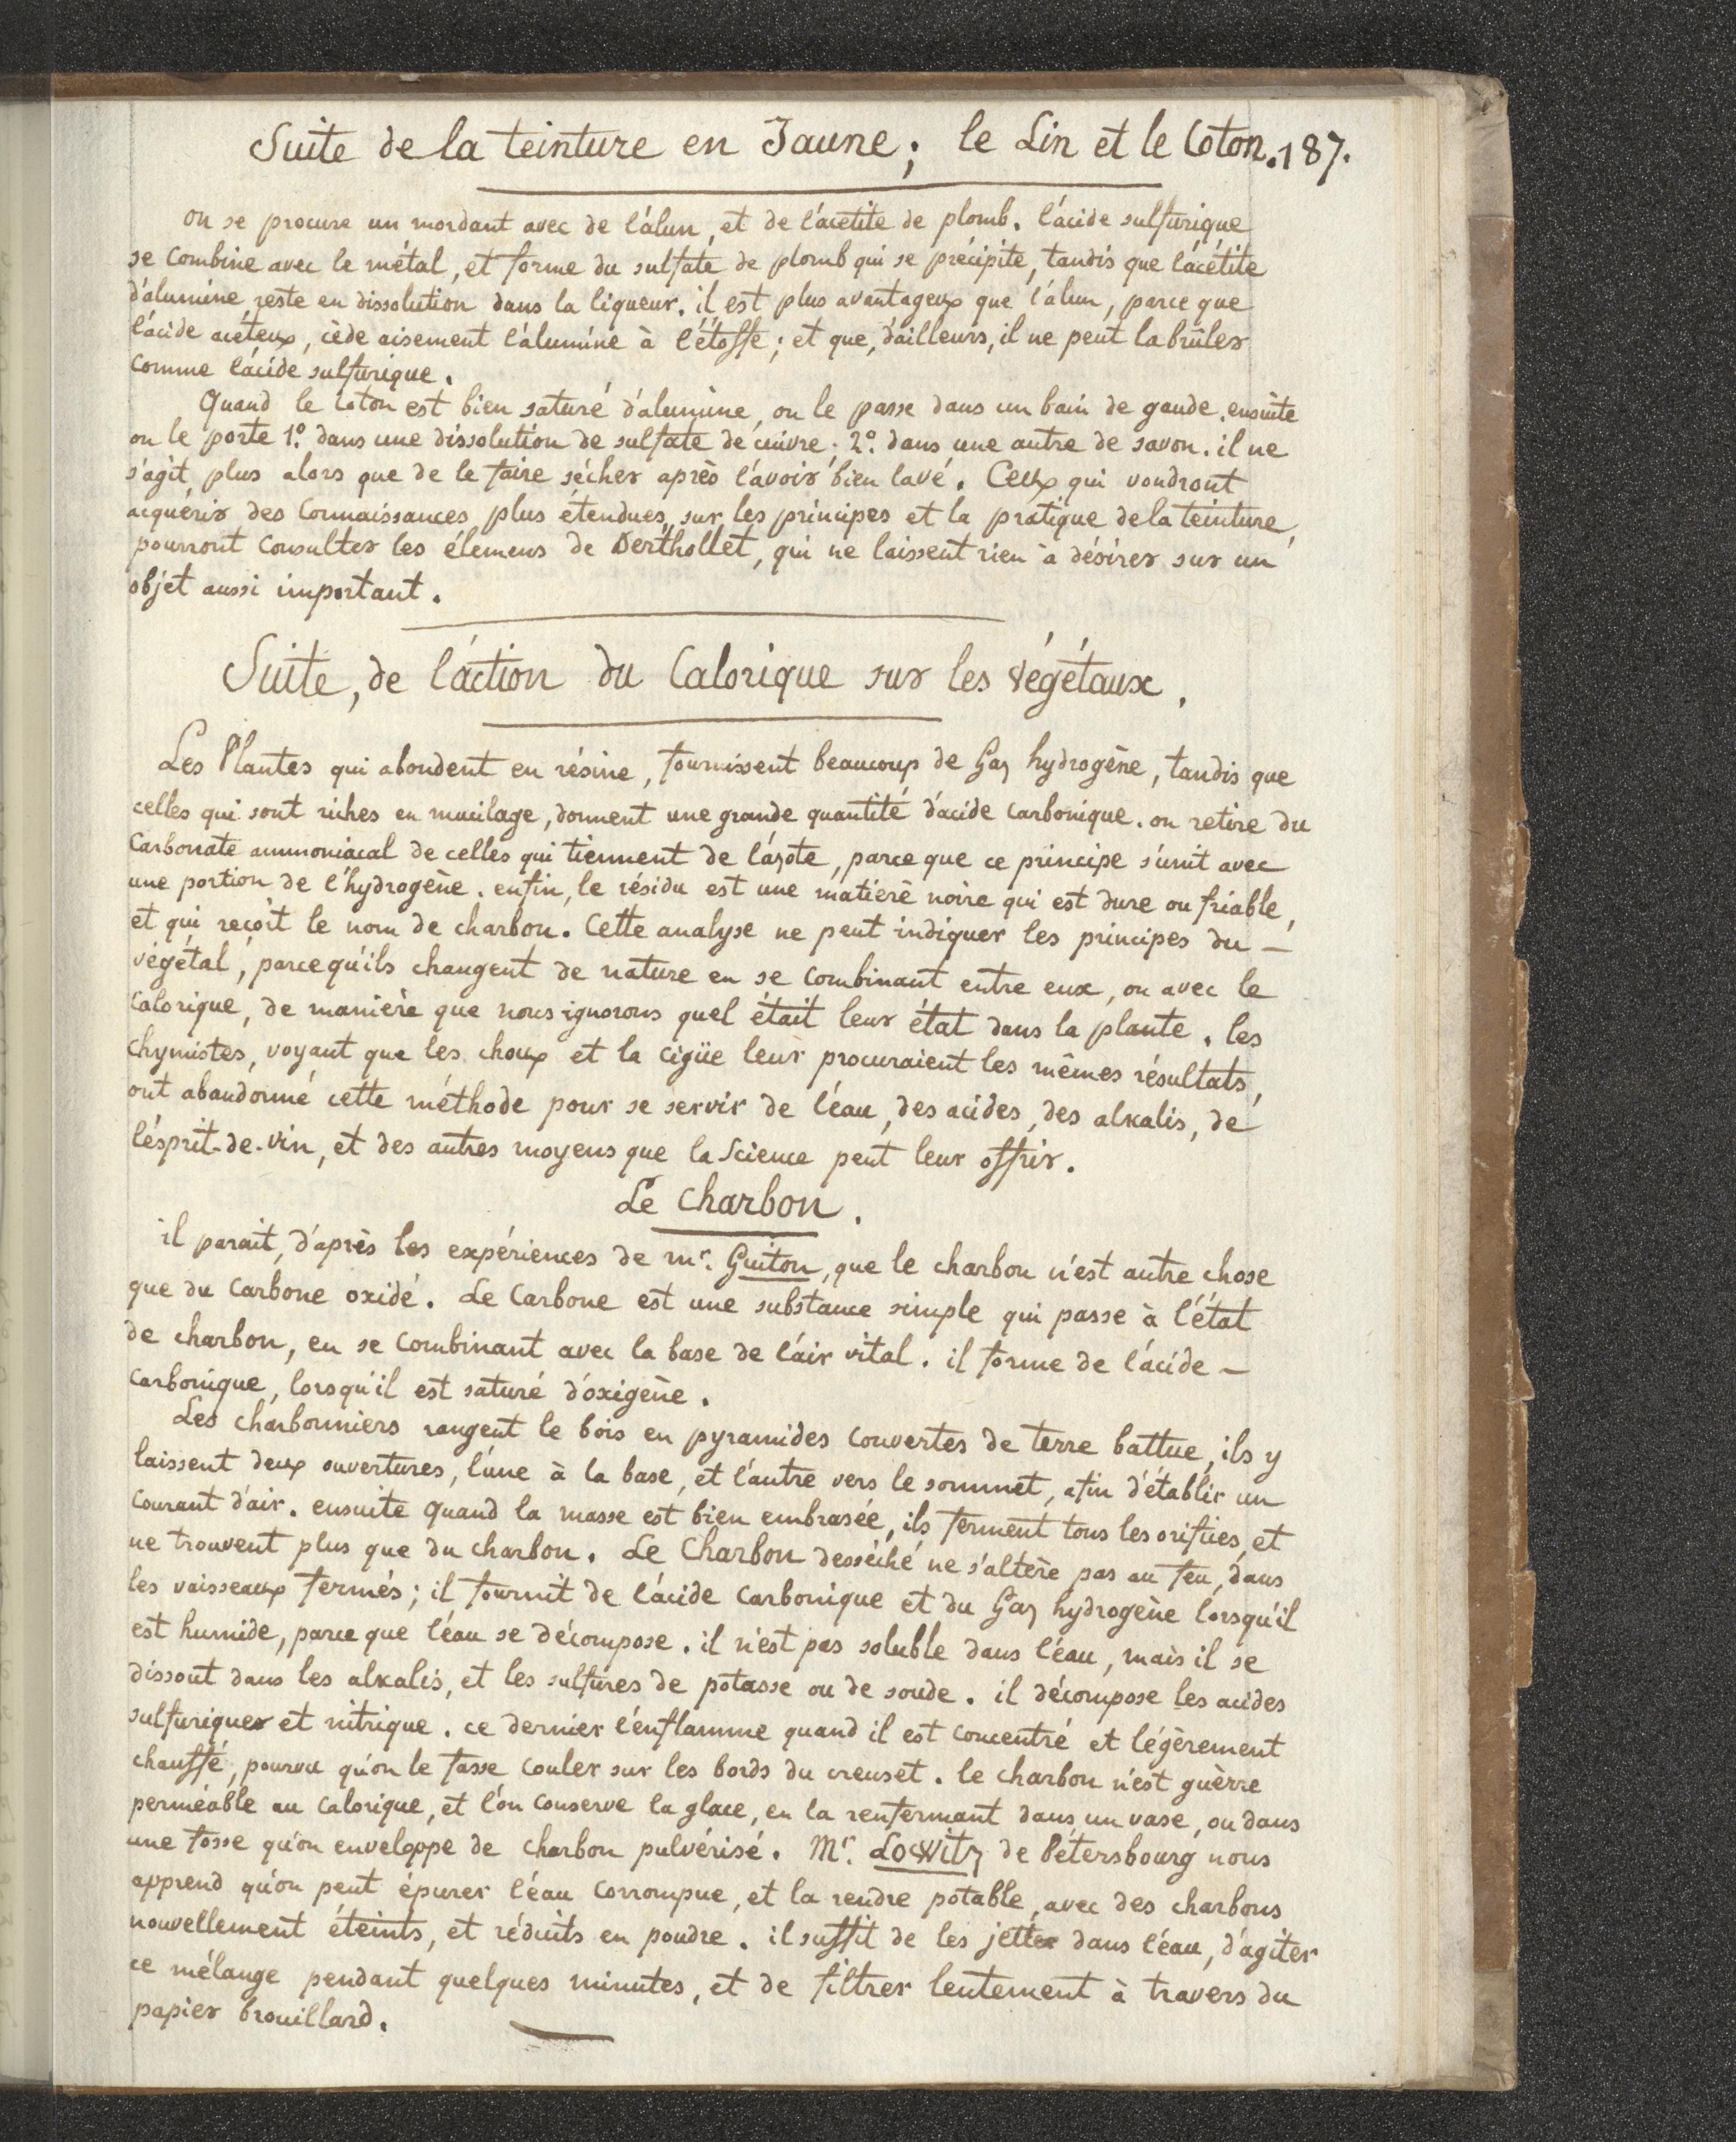 Suite de la teinture en Jaune; le Lin et le Coton. 187.
on se procure un mordant avec de l'álun, et de l'ácetite de plomb. l'ácide sulfurique
se combine avec le métal, et forme du sulfate de plomb qui se précipite, tandis que l'ácétite
d'alumine reste en dissolution dans la liqueur. il est plus avantageux que l'álun, parce que
l'ácide acéteux, cède aisement l'álumine à l'étoffe; et que, d'ailleurs, il ne peut la brûler
comme l'ácide sulfurique.
Quand le coton est bien saturé d'alumine, on le passe dans un bain de gaude. ensuite
on le porte 1.º dans une dissolution de sulfate de cuivre; 2.º dans une autre de savon. il ne
s'agit plus alors que de le faire sécher après l'ávoir bien lavé. Ceux qui voudront
acquérir des connaissances plus étendues, sur les principes et la pratique de la teinture,
pourront consulter les élemens de Berthollet, qui ne laissent rien à désirer sur un
objet aussi important.
Suite, de l'áction du Calorique sur les végétaux.
Les Plantes qui abondent en résine, fournissent beaucoup de Gaz hydrogène, tandis que
celles qui sont riches en mucilage, donnent une grande quantité d'acide carbonique. on retire du
Carbonate ammoniacal de celles qui tiennent de l'ázote, parce que ce principe s'unit avec
une portion de l'hydrogène. enfin, le résidu est une matière noire qui est dure ou friable,
et qui reçoit le nom de charbon. Cette analyse ne peut indiquer les principes du —
végétal, parcequ'ils changent de nature en se combinant entre eux, ou avec le
Calorique, de manière que nous ignorons quel était leur état dans la plante. les
chymistes, voyant que les choux et la cigüe leur procuraient les mêmes résultats,
ont abandonné cette méthode pour se servir de l'éau, des acides, des alkalis, de
l'ésprit-de-vin, et des autres moyens que la Science peut leur offrir.
Le Charbon.
il parait, d'après les expériences de mr. Guiton, que le charbon n'est autre chose
que du Carbone oxidé. Le Carbone est une substance simple qui passe à l'état
de charbon, en se combinant avec la base de l'áir vital. il forme de l'ácide —
carbonique, lorsqu'il est saturé d'óxigène.
Les charbonniers rangent le bois en pyramides couvertes de terre battue, ils y
laissent deux ouvertures, l'úne à la base, et l'autre vers le sommet, afin d'établir un
courant d'air. ensuite quand la masse est bien embrasée, ils ferment tous les orifices, et
ne trouvent plus que du charbon. Le Charbon desséché ne s'altère pas au feu, dans
les vaisseaux fermés; il fournit de l'ácide carbonique et du Gaz hydrogène lorsqu'il
est humide, parce que l'éau se décompose. il n'est pas soluble dans l'éau, mais il se
dissout dans les alkalis, et les sulfures de potasse ou de soude. il décompose les acides
sulfuriques et nitrique. ce dernier l'énflamme quand il est concentré et légèrement
chauffé, pourvu qu'on le fasse couler sur les bords du creuset. le charbon n'est guèrre
perméable au calorique, et l'ón conserve la glace, en la renfermant dans un vase, ou dans
une fosse qu'on enveloppe de charbon pulvérisé. Mr. Lowitz de Pétersbourg nous
apprend qu'on peut épurer l'éau corrompue, et la rendre potable, avec des charbons
nouvellement éteints, et réduits en poudre. il suffit de les jetter dans l'éau, d'agiter
ce mélange pendant quelques minutes, et de filtrer lentement à travers du
papier brouillard.